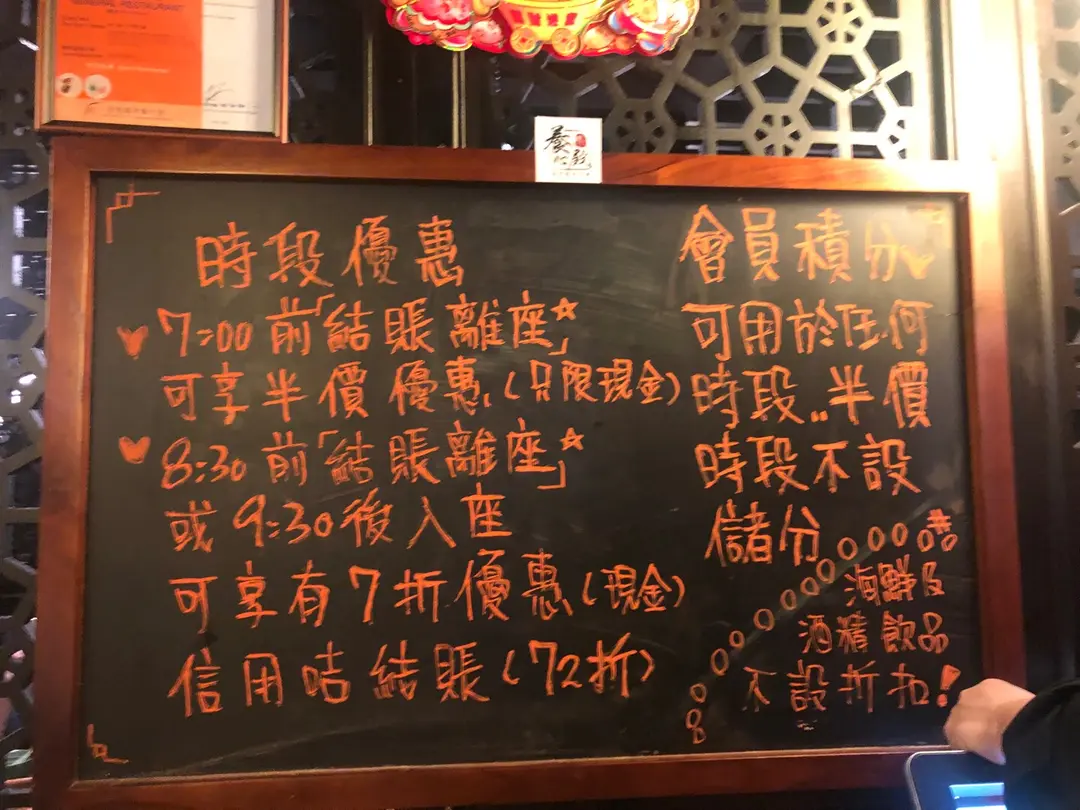 GENERAL RESTAURANT
時段優惠
7:00前「結賬離座☆」
可享半價優惠(只限現金)
8:30前「結賬離座☆」
或9:30後入座
可享有7折優惠(現金)
信用咭結賬(72折)
會員積分
可用於任何
時段..半價
時段不設
儲分
海鮮及
酒精飲品
不設折扣!